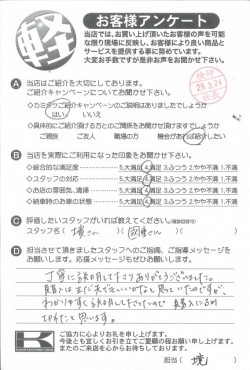 軽
お客様アンケート
当店では、お買い上げ頂いたお客様の声を可能
な限り現場に反映し、お客様により良い商品と
サービスを提供する事に努めています。
大変お手数ですが是非お声をお聞かせ下さい。
A 当店はご紹介を大切にしております。
ご紹介キャンペーンについてお聞かせ下さい。
◇カミタケご紹介キャンペーンのご説明はありましたでしょうか
はい いいえ
◇具体的にご紹介頂ける方とのご関係をお聞かせ頂けますでしょうか
ご親族 ご友人 職場の方 機会があれば紹介したい
B 当店を実際にご利用になった印象をお聞かせ下さい。
◇総合的な満足度 5.大満足 4.満足 3.ふつう 2.やや不満 1.不満
◇スタッフの対応 5.大満足 4.満足 3.ふつう 2.やや不満 1.不満
◇お店の雰囲気、清掃 5.大満足 4.満足 3.ふつう 2.やや不満 1.不満
◇納車時のお車の状態 5.大満足 4.満足 3.ふつう 2.やや不満 1.不満
C 評価したいスタッフがいれば教えてください。(複数回答可)
スタッフ名( 境さん )( さん )
D 担当させて頂きましたスタッフへのご指摘、ご指導メッセージを
お願いします。応援メッセージもぜひお願いします。
丁寧に説明して下さりありがとうございました。
購入はまだ先でいいかなと思っていたのですが、
わかりやすく説明して下さったので購入にふみ
切れたと思います。
K
ご協力に心よりお礼を申し上げます。
今後とも宜しくお引き立てご愛顧の程お願い申し上げます。
またのご来店を心からお待ちしております。
担当( 境 )